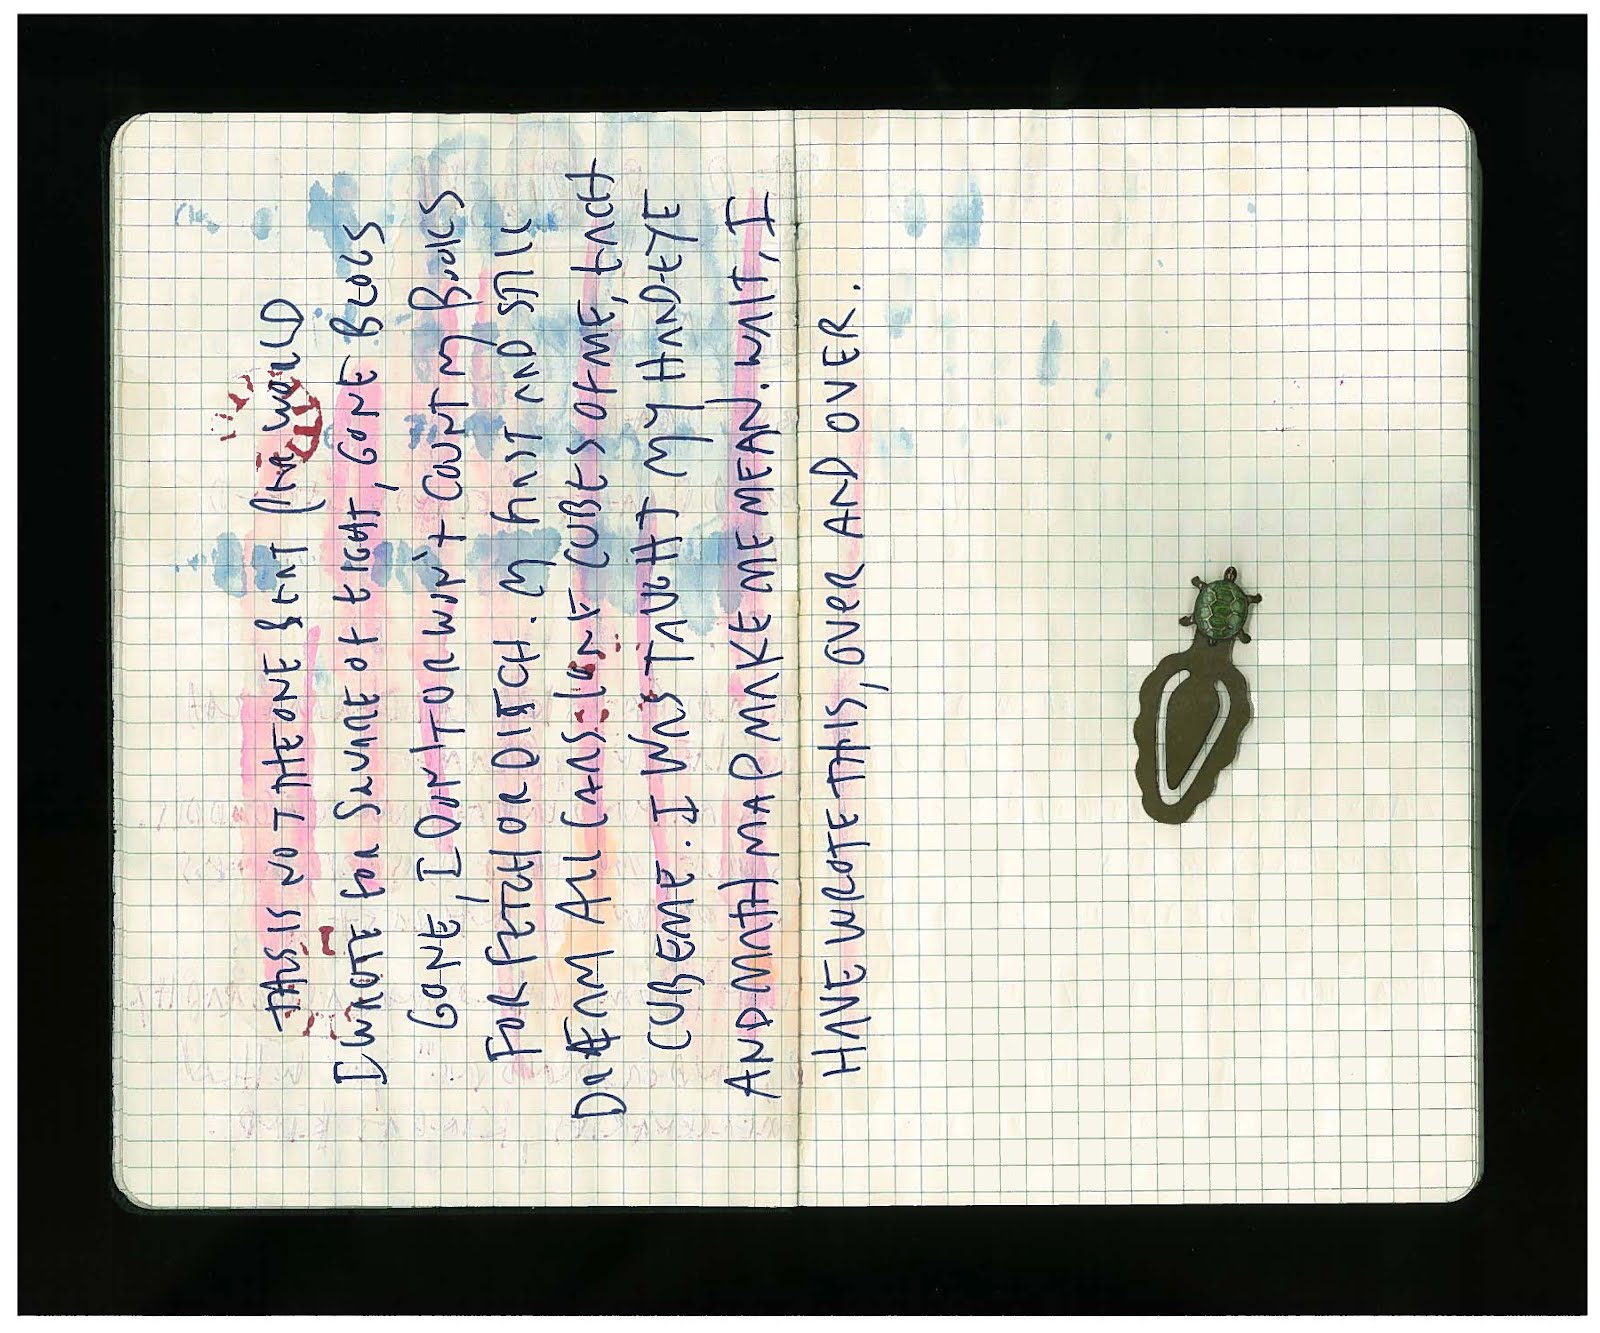 THIS IS NOT THE ONE SENT WORLD
I WROTE FOR SQUARE OF EIGHT, GONE BLOGS
GONE, I DON'T OR WON'T COUNT MY BOOKS
FOR FETCH OR DITCH. MY FAST AND STILL
DREAM ALL CARS CUBES OF ME, EACH
CUBE ME. I WAS TAUGHT MY HANDEYE
AND MATH MAP MAKE ME MEAN. WAIT, I
HAVE WROTE THIS, OVER AND OVER.